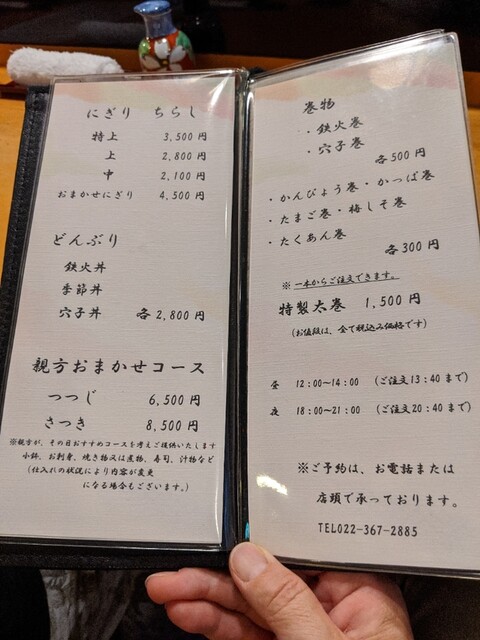 にぎり ちらし
特上 3,500円
上 2,800円
中 2,100円
おまかせにぎり 4,500円
どんぶり
鉄火丼
季節丼
穴子丼 各2,800円
親方おまかせコース
つつじ 6,500円
さつき 8,500円
※親方が、その日おすすめコースを考えご提供いたします
小鉢、お刺身、焼き物又は煮物、寿司、汁物など
(仕入れの状況により内容が変更
になる場合もございます。)
巻物
・鉄火巻
・穴子巻
各500円
・かんぴょう巻・かっぱ巻
・たまご巻・梅しそ巻
・たくあん巻
各300円
※一本からご注文できます。
特製太巻 1,500円
(お値段は、全て税込み価格です)
昼 12:00~14:00 (ご注文13:40まで)
夜 18:00~21:00 (ご注文20:40まで)
※ご予約は、お電話または
店頭で承っております。
TEL022-367-2885